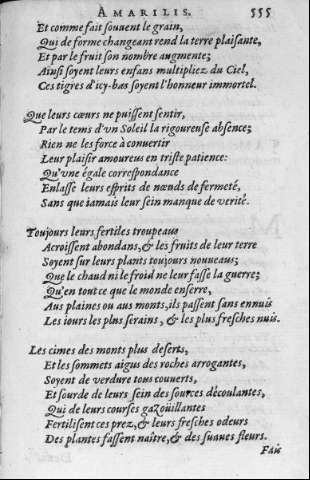 AMARILIS. 555
Et comme fait souvent le grain,
Qui de forme changeant rend la terre plaisante,
Et par le fruit son nombre augmente;
Ainsi soyent leurs enfans multipliez du Ciel,
Ces tigres d'icy-bas soyent l'honneur immortel.
Que leurs cœurs ne puissent sentir,
Par le tems d'vn Soleil la rigourense absence;
Rien ne les force à convertir
Leur plaisir amoureus en triste patience:
Qu'vne égale correspondance
Enlasse leurs esprits de nœuds de fermeté,
Sans que iamais leur sein manque de verité.
Toujours leurs fertiles troupeaus
Acroissent abondans, & les fruits de leur terre
Soyent sur leurs plants toujours nouveaus;
Que le chaud ni le froid ne leur fasse la guerre;
Qu'en tout ce que le monde enserre,
Aus plaines ou aus monts, ils passent sans ennuis
Les iours les plus serains, & les plus fresches nuis.
Les cimes des monts plus deserts,
Et les sommets aigus des roches arrogantes,
Soyent de verdure tous couverts,
Et sourde de leurs sein des sources découlantes,
Qui de leurs courses gazoüillantes
Fertilisent ces prez, & leurs fresches odeurs
Des plantes fassent naître, & des suaves fleurs.
Fai